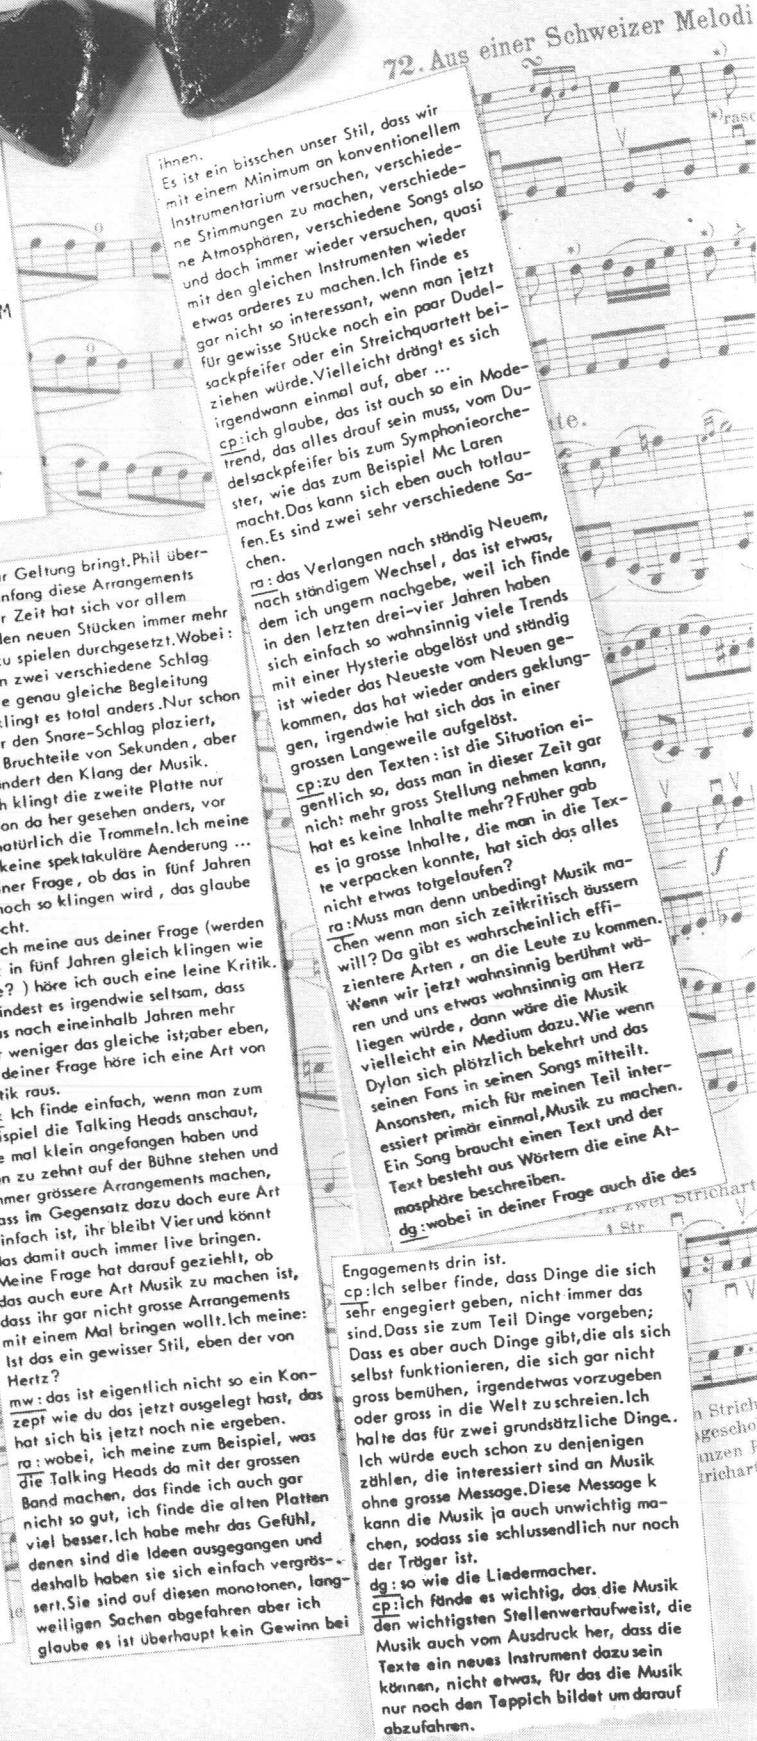 72. Aus einer Schweizer Melodi
*)
*)rasc
M
r Geltung bringt.Phil über-
nfang diese Arrangements
r Zeit hat sich vor allem
len neuen Stücken immer mehr
zu spielen durchgesetzt.Wobei:
n zwei verschiedene Schlag
e genau gleiche Begleitung
klingt es total anders.Nur schon
r den Snare-Schlag plaziert,
Bruchteile von Sekunden, aber
ändert den Klang der Musik.
h klingt die zweite Platte nur
on da her gesehen anders, vor
natürlich die Trommeln.Ich meine
keine spektakuläre Aenderung ...
iner Frage, ob das in fünf Jahren
noch so klingen wird, das glaube
cht.
ch meine aus deiner Frage (werden
in fünf Jahren gleich klingen wie
e?) höre ich auch eine leine Kritik.
indest es irgendwie seltsam, dass
as nach eineinhalb Jahren mehr
r weniger das gleiche ist;aber eben,
deiner Frage höre ich eine Art von
tik raus.
: Ich finde einfach, wenn man zum
ispiel die Talking Heads anschaut,
e mal klein angefangen haben und
n zu zehnt auf der Bühne stehen und
mmer grössere Arrangements machen,
ass im Gegensatz dazu doch eure Art
infach ist, ihr bleibt Vier und könnt
das damit auch immer live bringen.
Meine Frage hat darauf geziehlt, ob
das auch eure Art Musik zu machen ist,
dass ihr gar nicht grosse Arrangements
mit einem Mal bringen wollt.Ich meine:
Ist das ein gewisser Stil, eben der von
Hertz?
mw:das ist eigentlich nicht so ein Kon-
zept wie du das jetzt ausgelegt hast, das
hat sich bis jetzt noch nie ergeben.
ra:wobei, ich meine zum Beispiel, was
die Talking Heads da mit der grossen
Band machen, das finde ich auch gar
nicht so gut, ich finde die alten Platten
viel besser.Ich habe mehr das Gefühl,
denen sind die Ideen ausgegangen und
deshalb haben sie sich einfach vergrös-
sert.Sie sind auf diesen monotonen, lang-
weiligen Sachen abgefahren aber ich
glaube es ist überhaupt kein Gewinn bei
ihnen.
Es ist ein bisschen unser Stil, dass wir
mit einem Minimum an konventionellem
Instrumentarium versuchen, verschiede-
ne Stimmungen zu machen, verschiede-
ne Atmosphären, verschiedene Songs also
und doch immer wieder versuchen, quasi
mit den gleichen Instrumenten wieder
etwas anderes zu machen.Ich finde es
gar nicht so interessant, wenn man jetzt
für gewisse Stücke noch ein paar Dudel-
sackpfeifer oder ein Streichquartett bei-
ziehen würde.Vielleicht drängt es sich
irgendwann einmal auf, aber ...
cp:ich glaube, das ist auch so ein Mode-
trend, das alles drauf sein muss, vom Du-
delsackpfeifer bis zum Symphonieorche-
ster, wie das zum Beispiel Mc Laren
macht.Das kann sich eben auch totlau-
fen.Es sind zwei sehr verschiedene Sa-
chen.
ra:das Verlangen nach ständig Neuem,
nach ständigem Wechsel, das ist etwas,
dem ich ungern nachgebe, weil ich finde
in den letzten drei-vier Jahren haben
sich einfach so wahnsinnig viele Trends
mit einer Hysterie abgelöst und ständig
ist wieder das Neueste vom Neuen ge-
kommen, das hat wieder anders geklung-
gen, irgendwie hat sich das in einer
grossen Langeweile aufgelöst.
cp:zu den Texten:ist die Situation ei-
gentlich so, dass man in dieser Zeit gar
nicht mehr gross Stellung nehmen kann,
hat es keine Inhalte mehr?Früher gab
es ja grosse Inhalte, die man in die Tex-
te verpacken konnte, hat sich das alles
nicht etwas totgelaufen?
ra:Muss man denn unbedingt Musik ma-
chen wenn man sich zeitkritisch äussern
will?Da gibt es wahrscheinlich effi-
zientere Arten, an die Leute zu kommen.
Wenn wir jetzt wahnsinnig berühmt wä-
ren und uns etwas wahnsinnig am Herz
liegen würde, dann wäre die Musik
vielleicht ein Medium dazu.Wie wenn
Dylan sich plötzlich bekehrt und das
seinen Fans in seinen Songs mitteilt.
Ansonsten, mich für meinen Teil inter-
essiert primär einmal,Musik zu machen.
Ein Song braucht einen Text und der
Text besteht aus Wörtern die eine At-
mosphäre beschreiben.
dg:wobei in deiner Frage auch die des
Engagements drin ist.
cp:Ich selber finde, dass Dinge die sich
sehr engegiert geben, nicht immer das
sind.Dass sie zum Teil Dinge vorgeben;
Dass es aber auch Dinge gibt,die als sich
selbst funktionieren, die sich gar nicht
gross bemühen, irgendetwas vorzugeben
oder gross in die Welt zu schreien.Ich
halte das für zwei grundsätzliche Dinge..
Ich würde euch schon zu denjenigen
zählen, die interessiert sind an Musik
ohne grosse Message.Diese Message k
kann die Musik ja auch unwichtig ma-
chen, sodass sie schlussendlich nur noch
der Träger ist.
dg:so wie die Liedermacher.
cp:Ich fände es wichtig, das die Musik
den wichtigsten Stellenwertaufweist, die
Musik auch vom Ausdruck her, dass die
Texte ein neues Instrument dazu sein
können, nicht etwas, für das die Musik
nur noch den Teppich bildet um darauf
abzufahren.
te.
in zwei Strichart
1 Str
n Strich
gescho
anzen
trichart